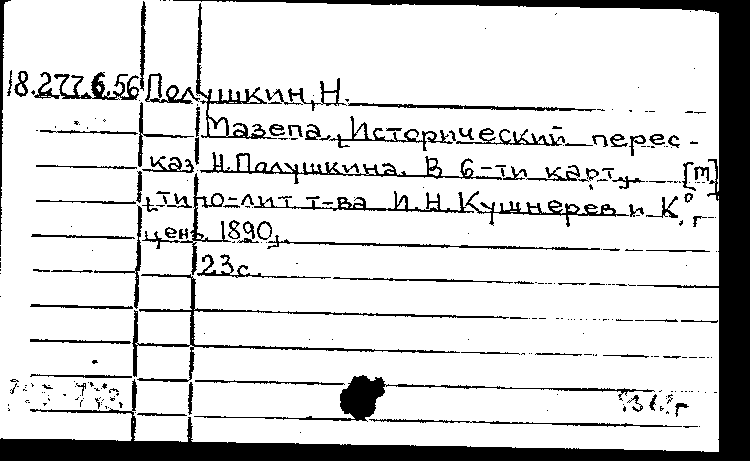 18.277.6.56 Полушкин, Н.
Мазепа. [Исторический перес-
каз Н. Полушкина. В 6-ти карт.]. [М.]
[типо-лит. т-ва И.Н. Кушнерев и К°,
ценз. 1890].
23с.